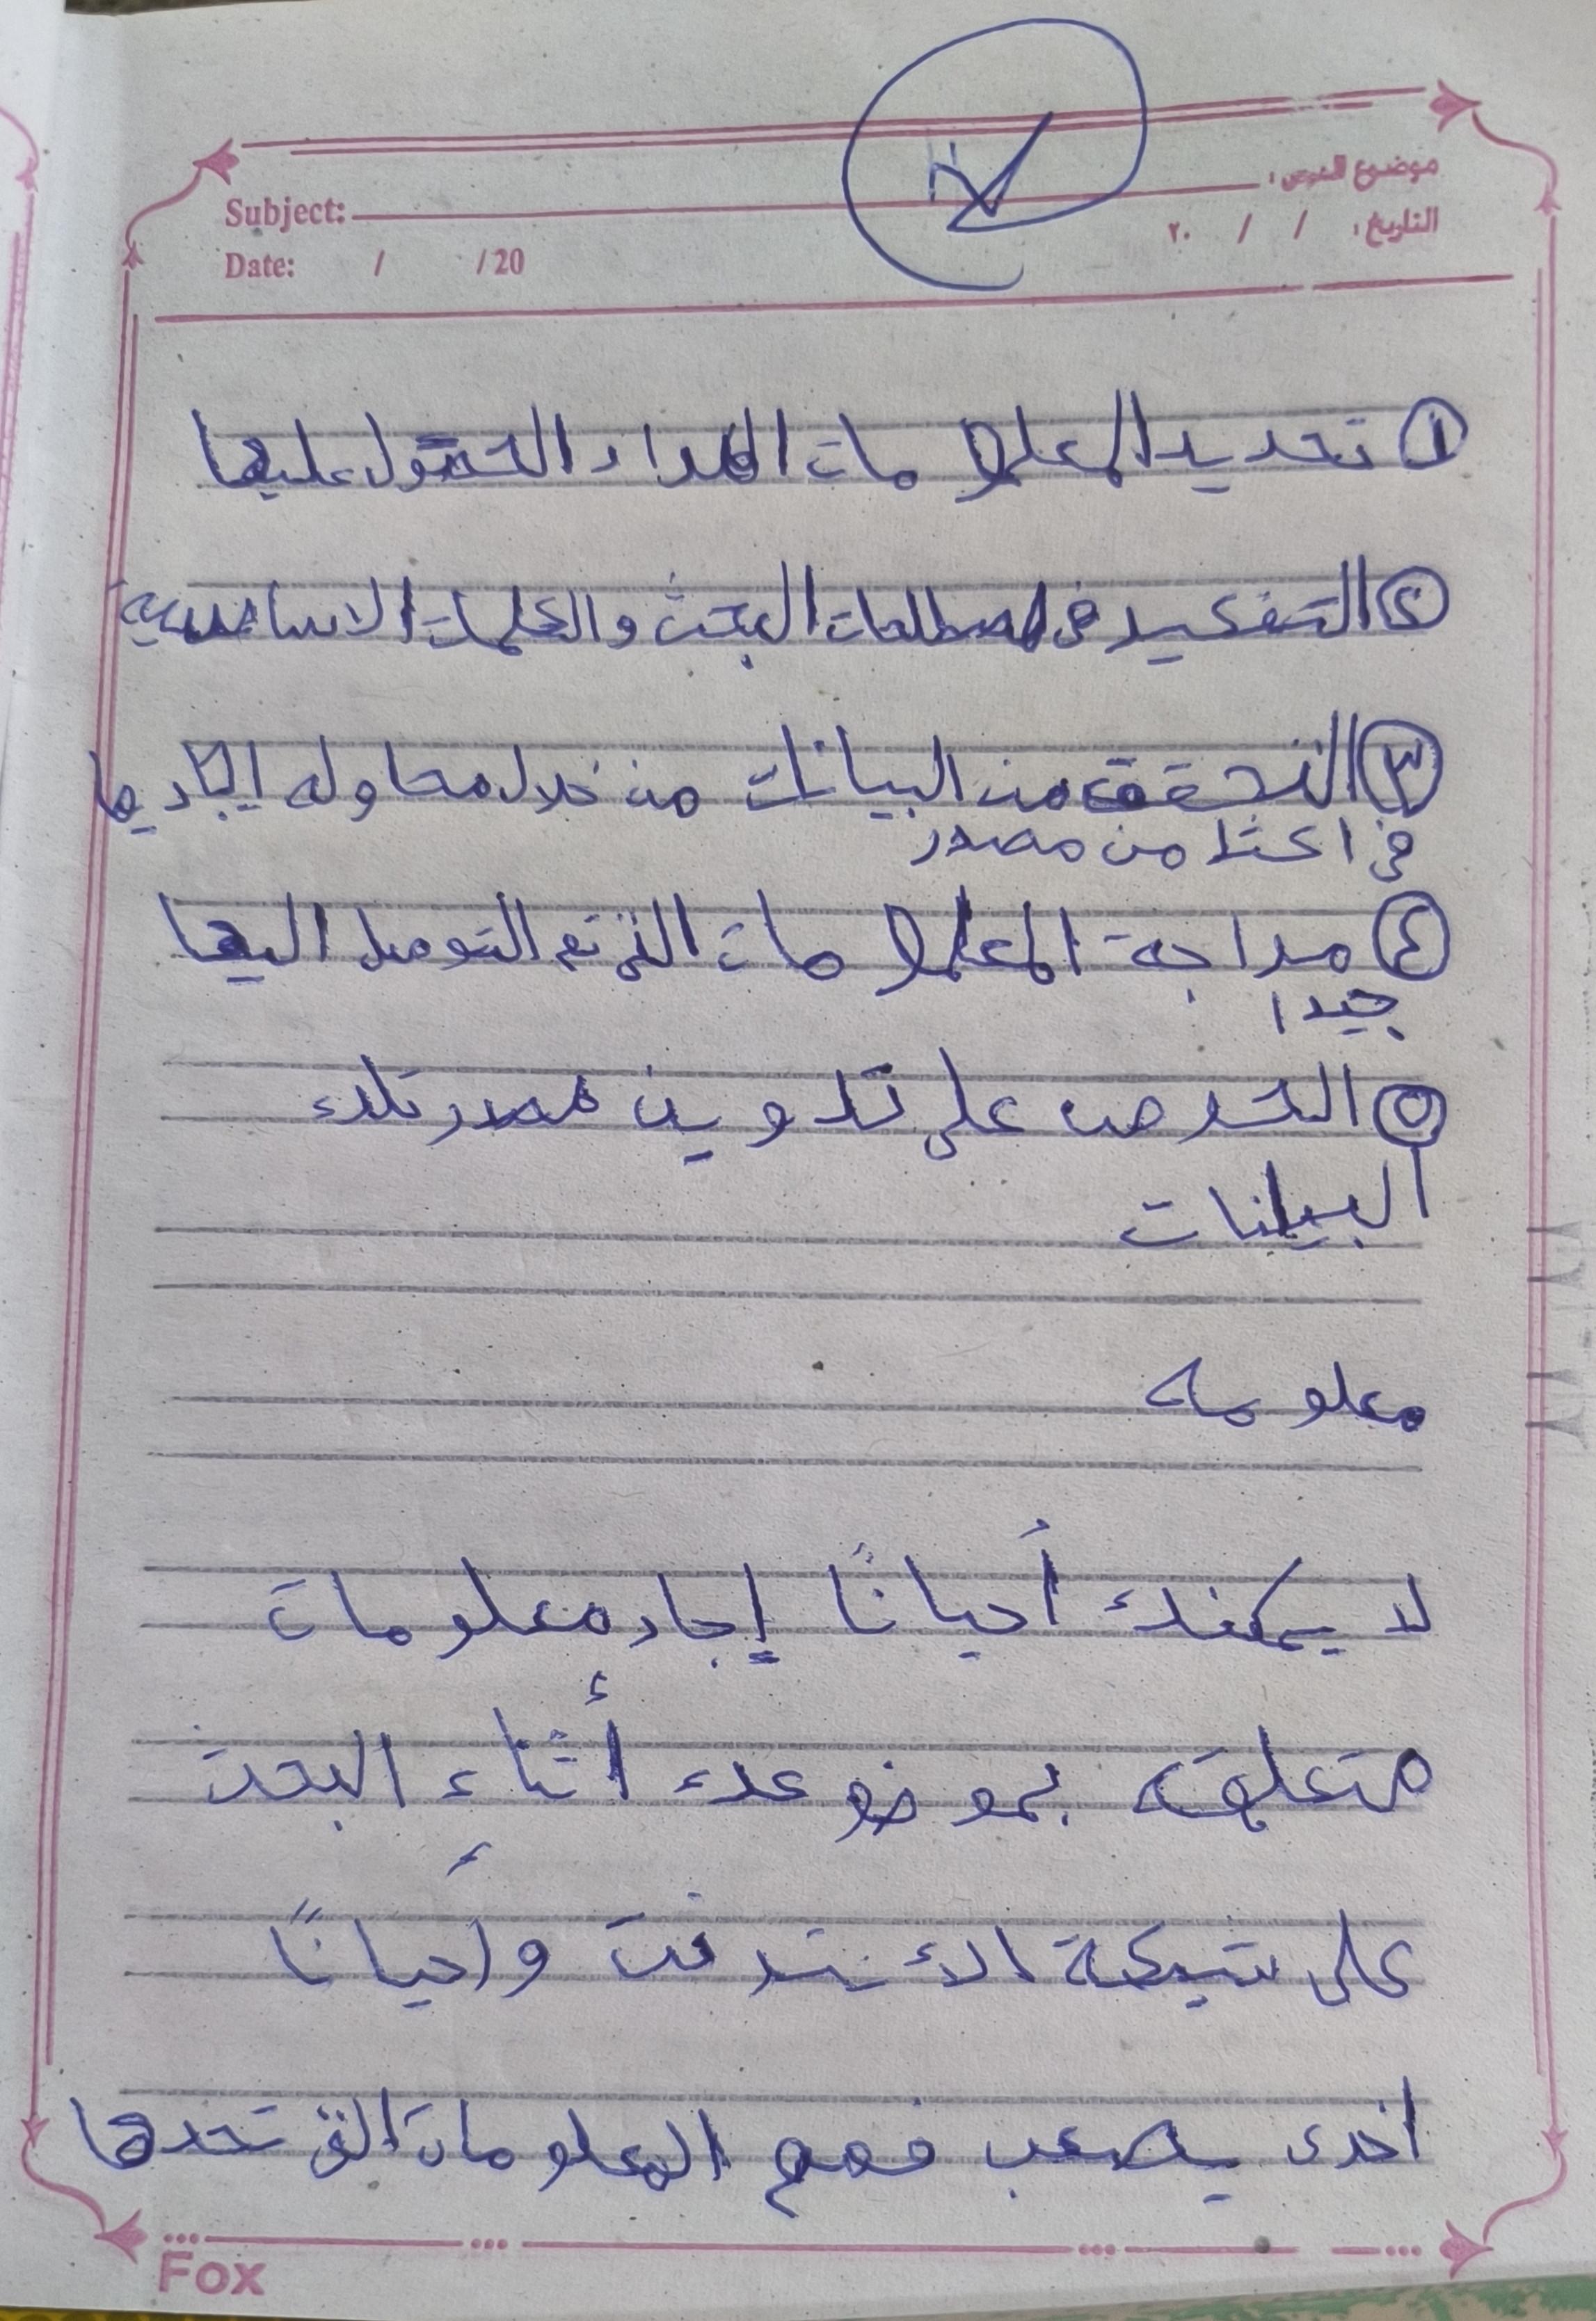 موضوع الدرس:
Subject:
التاريخ: / / ٢٠
Date: / / 20
١ تحديد المعلومات المراد الحصول عليها
٢ التفكير فى مصطلحات البحث والكلمات الاساسية
٣ التحقق من البيانات من خلال محاوله ايجاديها
فى اكثر من مصدر
٤ مراجة المعلومات التى تم التوصل اليها
جيدا
٥ الحرص على تدوين مصدر تلك
البيانات
معلومه
لا يمكنك أحيانًا إيجاد معلومات
متعلقه بموضوعك أثناء البحث
على شبكة الأنترنت وأحيانًا
اخرى يصعب فهم المعلومات التى تجدها
Fox